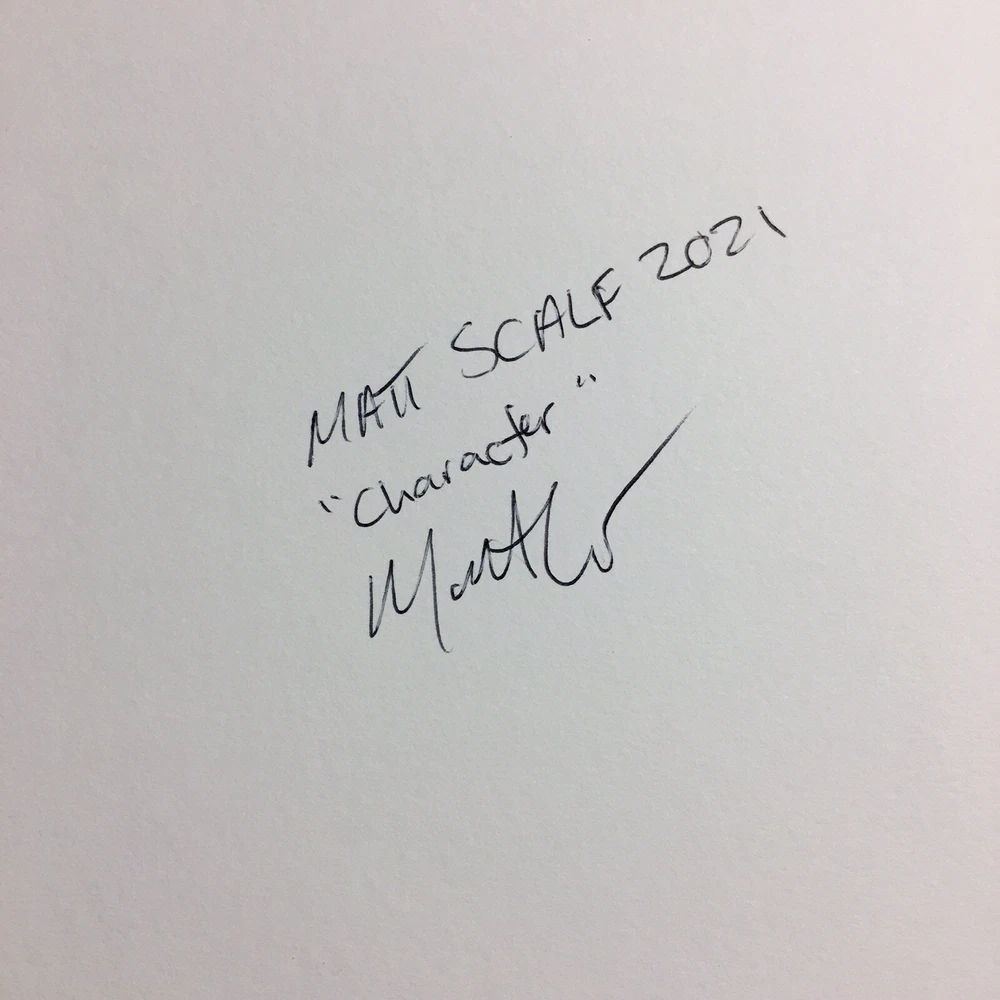 MATT SCALF 2021
"Character"